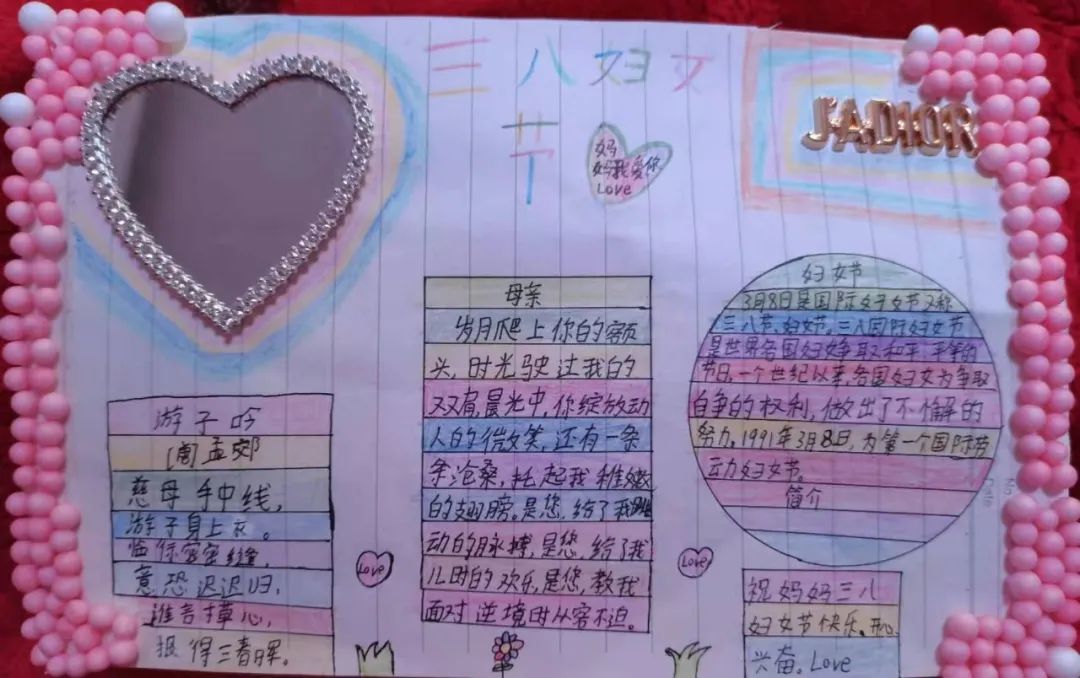 三八妇女
节
妈
妈我爱你
Love
J'ADIOR
游子吟
孟郊
慈母手中线，
游子身上衣。
临行密密缝，
意恐迟迟归，
谁言寸草心，
报得三春晖。
母亲
岁月爬上你的额
头，时光驶过我的
双肩，晨光中，你绽放动
人的微笑，还有一条
条沧桑，托起我稚嫩
的翅膀。是您，给了我跳
动的脉搏，是您，给了我
儿时的欢乐，是您，教我
面对逆境时从容不迫。
Love
Love
妇女节
3月8日是国际妇女节又称
三八节，妇女节。三八国际妇女节
是世界各国妇女争取和平、平等的
节日，一个世纪以来，各国妇女为争取
自争的权利，做出了不懈的
努力。1991年3月8日，为第一个国际节
动力妇女节。
简介
祝妈妈三八
妇女节快乐。开心
兴奋。Love